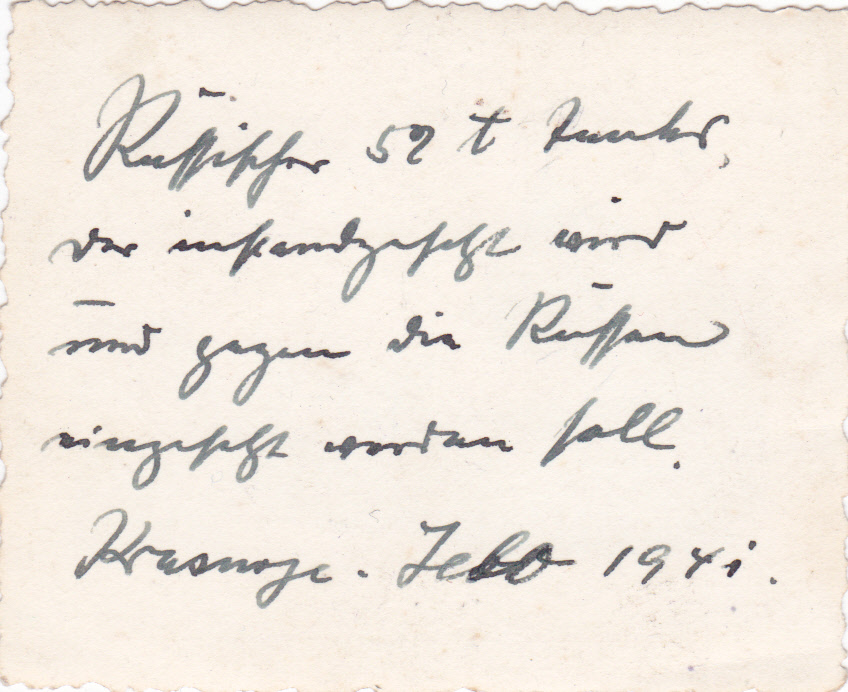 Russischer 52 t Tank,
der instandgesetzt wird
und gegen die Russen
eingesetzt werden soll.
Krasnoje. Selo 1941.